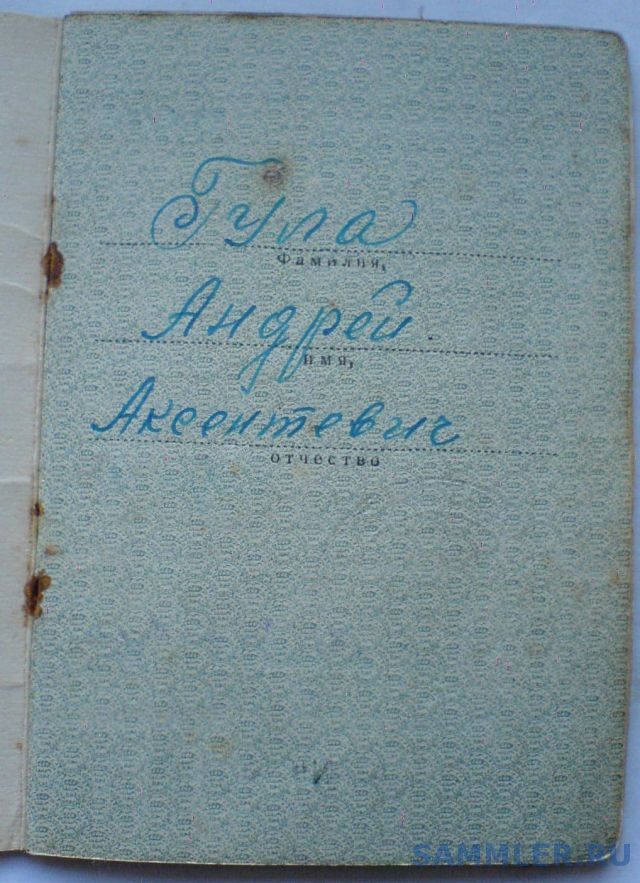 Гула
Фамилия,
Андрей
имя,
Аксентевич
отчество
SAMMLER.RU